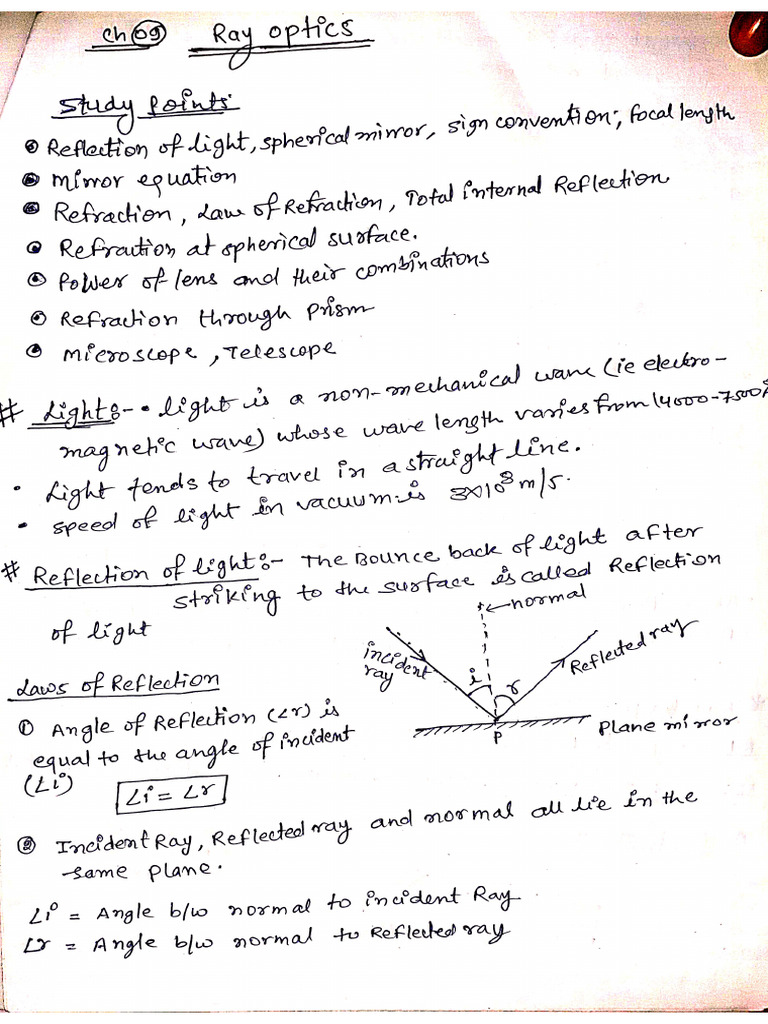 Ch 09 Ray optics
Study Points:
Reflection of light, spherical mirror, sign convention, focal length
mirror equation
Refraction, Law of Refraction, Total internal Reflection
Refraction at spherical surface.
Power of lens and their combinations
Refraction through prism
Microscope, Telescope
# Light:- • light is a non-mechanical wave (ie electro-
magnetic wave) whose wave length varies from (4000-7500Å
• Light tends to travel in a straight line.
• speed of light in vacuum is 3×10⁸ m/s.
# Reflection of light:- The Bounce back of light after
striking to the surface is called Reflection
of light
normal
incident
ray
i
r
Reflected ray
P
Plane mirror
Laws of Reflection
① Angle of Reflection (∠r) is
equal to the angle of incident
(∠i)
∠i = ∠r
② Incident Ray, Reflected ray and normal all lie in the
same plane.
∠i = Angle b/w normal to incident Ray
∠r = Angle b/w normal to Reflected ray